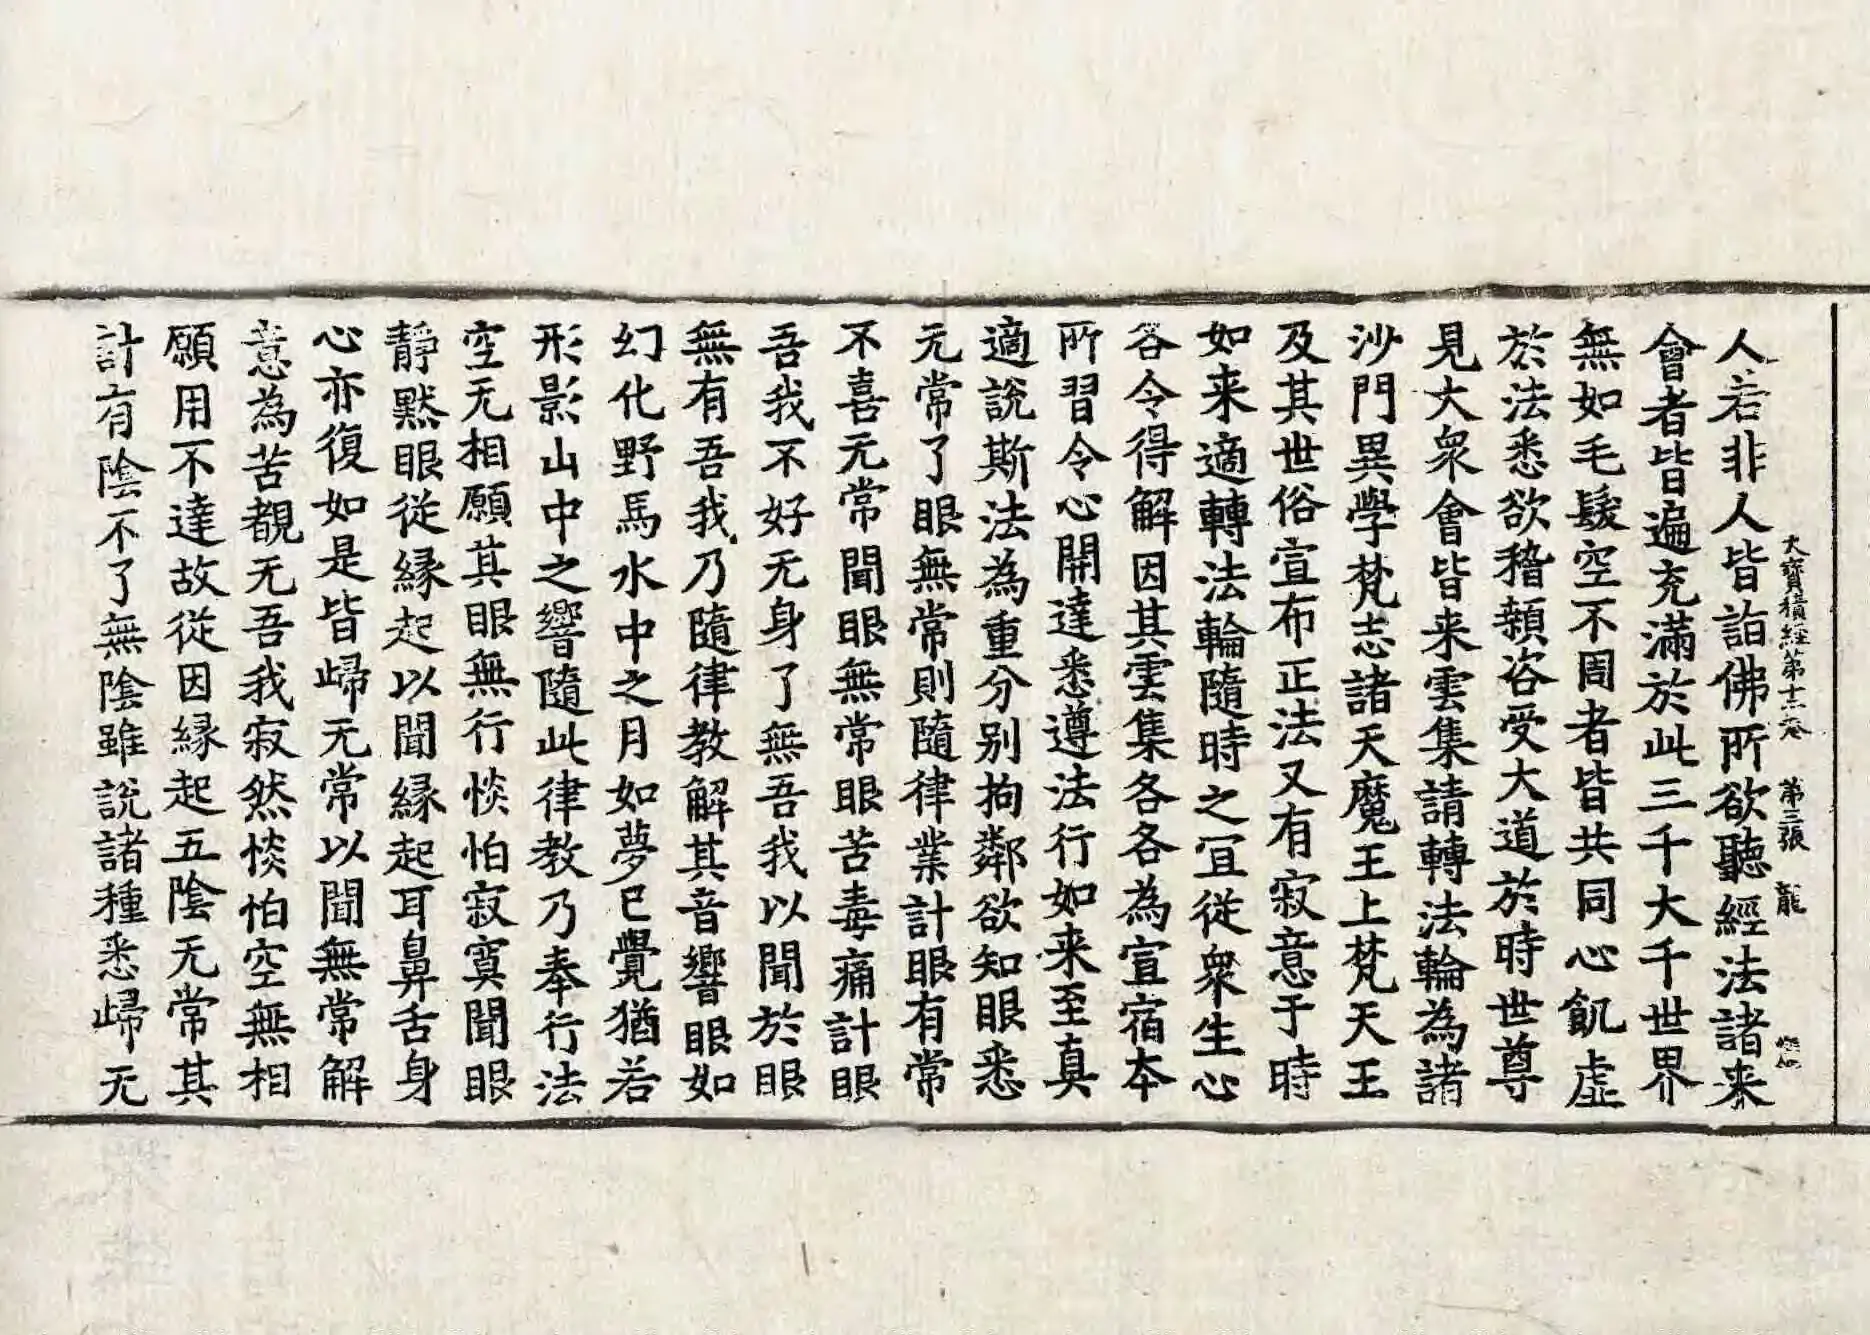 大寶積經第十二卷　第三張　龍
人若非人皆詣佛所欲聽經法諸来
會者皆遍充滿於此三千大千世界
無如毛髮空不周者皆共同心飢虛
於法悉欲稽顙咨受大道於時世尊
見大衆會皆来雲集請轉法輪為諸
沙門異學梵志諸天魔王上梵天王
及其世俗宣布正法又有寂意于時
如来適轉法輪隨時之冝從衆生心
各令得解因其雲集各各為宣宿本
所習令心開達悉遵法行如来至真
適說斯法為重分別拘鄰欲知眼悉
无常了眼無常則隨律業計眼有常
不喜无常聞眼無常眼苦毒痛計眼
吾我不好无身了無吾我以聞於眼
無有吾我乃隨律教解其音響眼如
幻化野馬水中之月如夢已覺猶若
形影山中之響隨此律教乃奉行法
空无相願其眼無行惔怕寂寞聞眼
靜黙眼從緣起以聞緣起耳鼻舌身
心亦復如是皆歸无常以聞無常解
意為苦覩无吾我寂然惔怕空無相
願用不達故從因緣起五陰无常其
計有陰不了無陰雖說諸種悉歸无